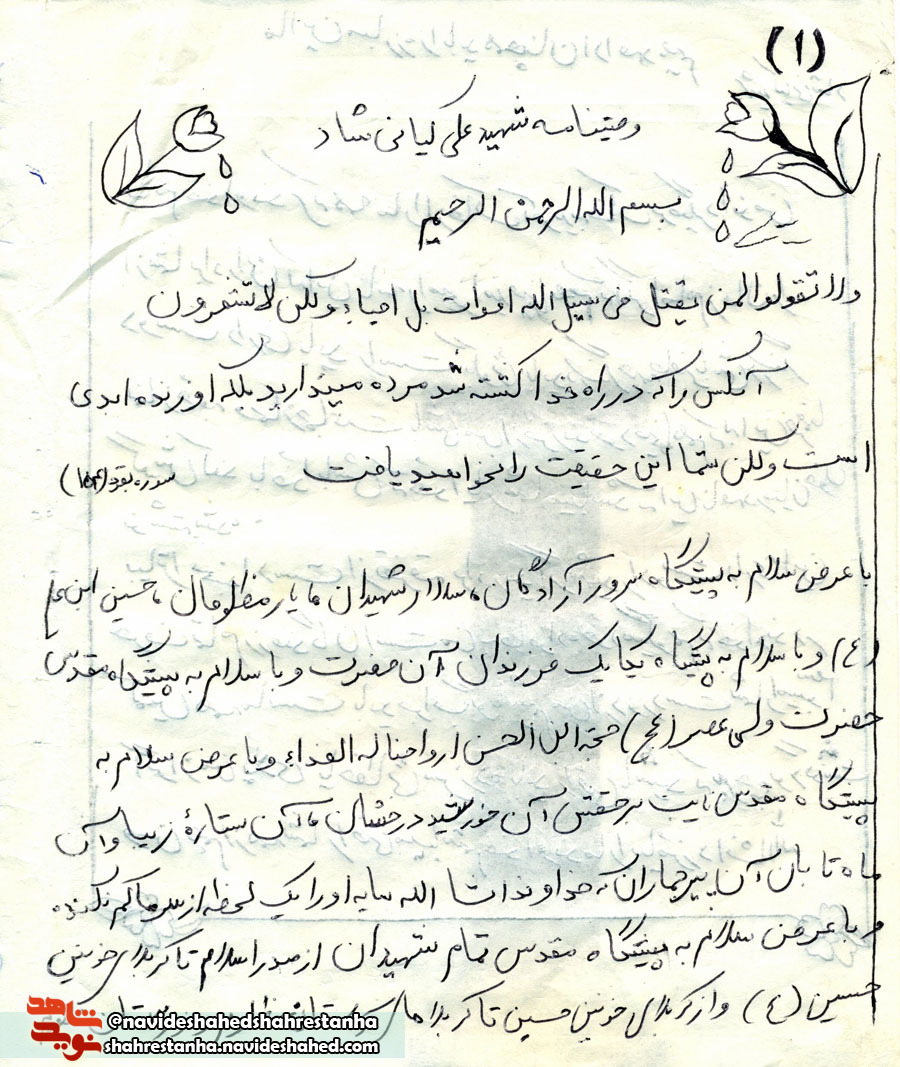 (۱)
وصیتنامه شهید علی کیانی شاد
بسم الله الرحمن الرحیم
ولا تقولوا لمن یقتل فی سبیل الله اموات بل احیاء ولکن لا تشعرون
آنکس را که در راه خدا کشته شد مرده مپندارید بلکه او زنده ابدی
است ولکن شما این حقیقت را نخواهید یافت سوره بقره (۱۵۴)
با عرض سلام به پیشگاه سرور آزادگان، سالار شهیدان، یار مظلومان، حسین ابن علی
(ع) و با سلام به پیشگاه یکایک فرزندان آن حضرت و با سلام به پیشگاه مقدس
حضرت ولی عصر (عج) حجة ابن الحسن ارواحنا له الفداء و با عرض سلام به
پیشگاه مقدس نایب برحقش آن خورشید درخشان، آن ستارهٔ زیبا و آن
ماه تابان آن پیر جماران که خداوند انشا الله سایه او را یک لحظه از سر ما کم نکند
و با عرض سلام به پیشگاه مقدس تمام شهیدان از صدر اسلام تا کربلای خونین
حسین (ع) و از کربلای خونین حسین تا کربلاهای
نوید شاهد
@navideshahedshahrestanha
shahrestanha.navideshahed.com